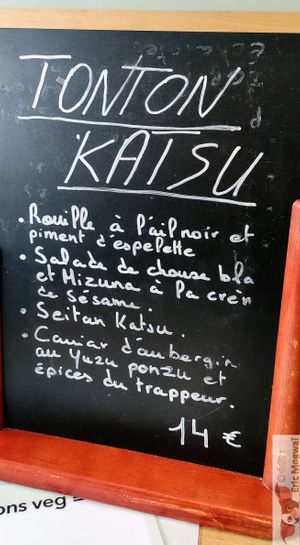 TONTON
KATSU
• Rouille à l'ail noir et
piment d'espelette
• Salade de chouse bla
et Mizuna à la crèm
de Sésame.
• Seitan Katsu.
• Caviar d'aubergin
au Yuzu ponzu et
épices du trappeur.
14 €
ons veg
Eric Mogwaï